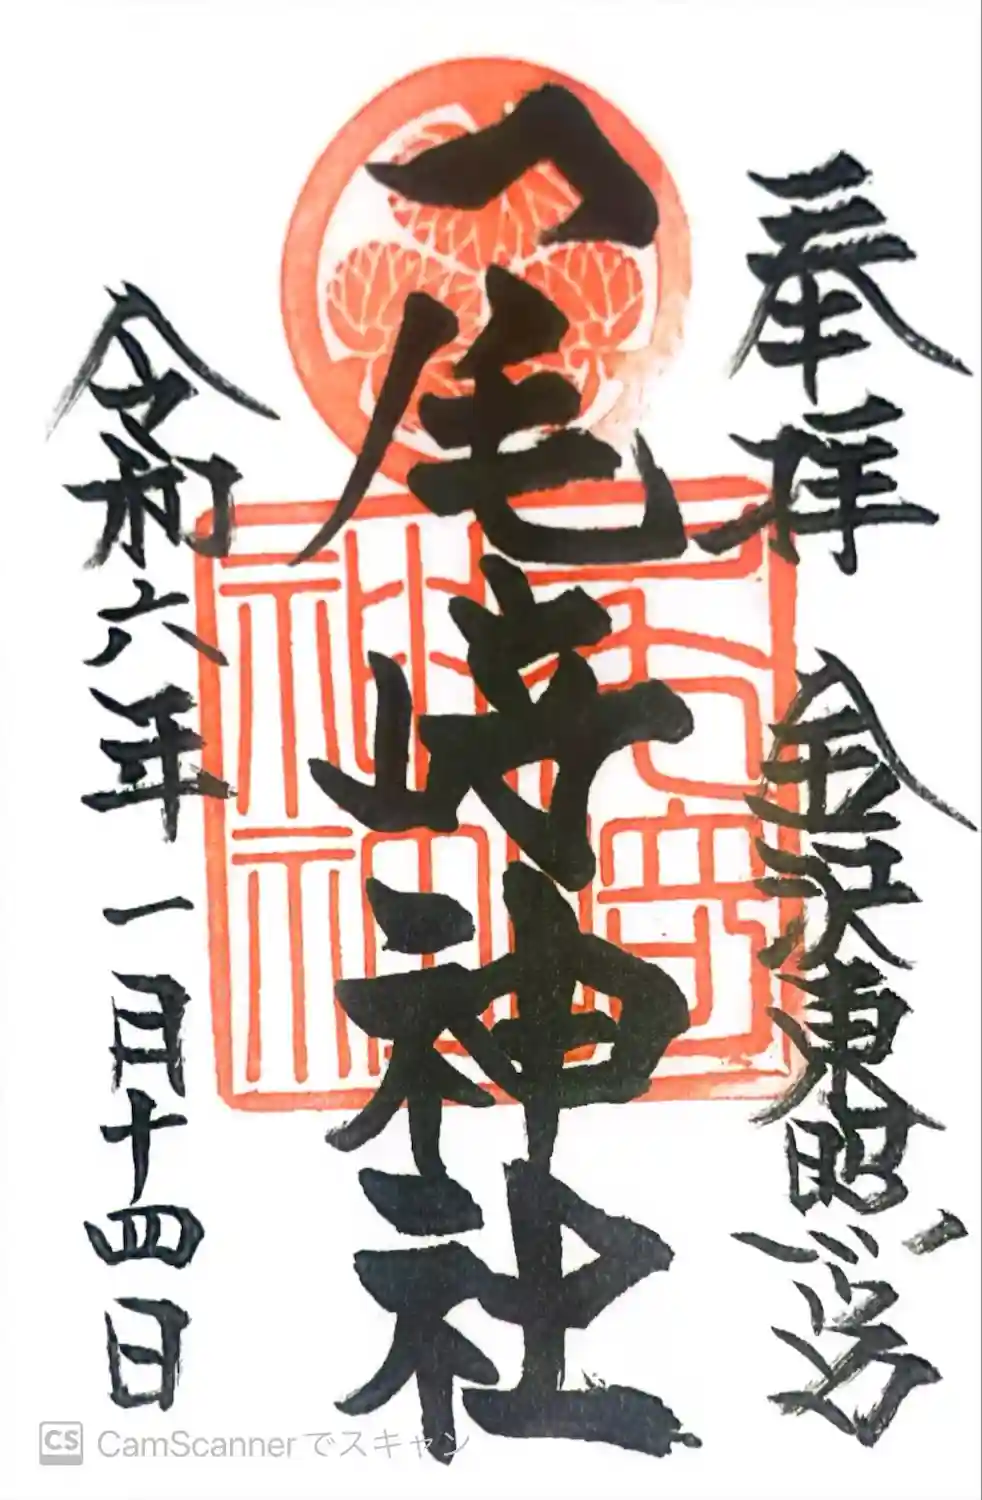 奉拝
金沢東照宮
尾崎神社
令和六年一月十四日
CS CamScannerでスキャン